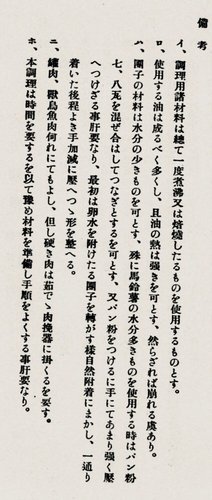 備考
イ、調理用諸材料は總て一度煮沸又は焙燒したるものを使用するものとす。
ロ、使用する油は成るべく多くし、且油の熱は强きを可とす、然らざれば崩れる虞あり。
ハ、團子の材料は水分の少きものを可とす、殊に馬鈴薯の水分多きものを使用する時はパン粉
七、八瓦を混ぜ合はしてつなぎとするを可とす、又パン粉をつけるに手にてあまり强く壓
へつけざる事肝要なり、最初は卵水を附けたる團子を轉がす樣自然附着にまかし、一通り
着いた後程よき手加減に壓へつゝ形を整へる。
ニ、罐肉、獸鳥魚肉何れにてもよし、但し硬き肉は茹でゝ肉挽器に掛くるを要す。
ホ、本調理は時間を要するを以て豫め材料を準備し手順をよくする事肝要なり。